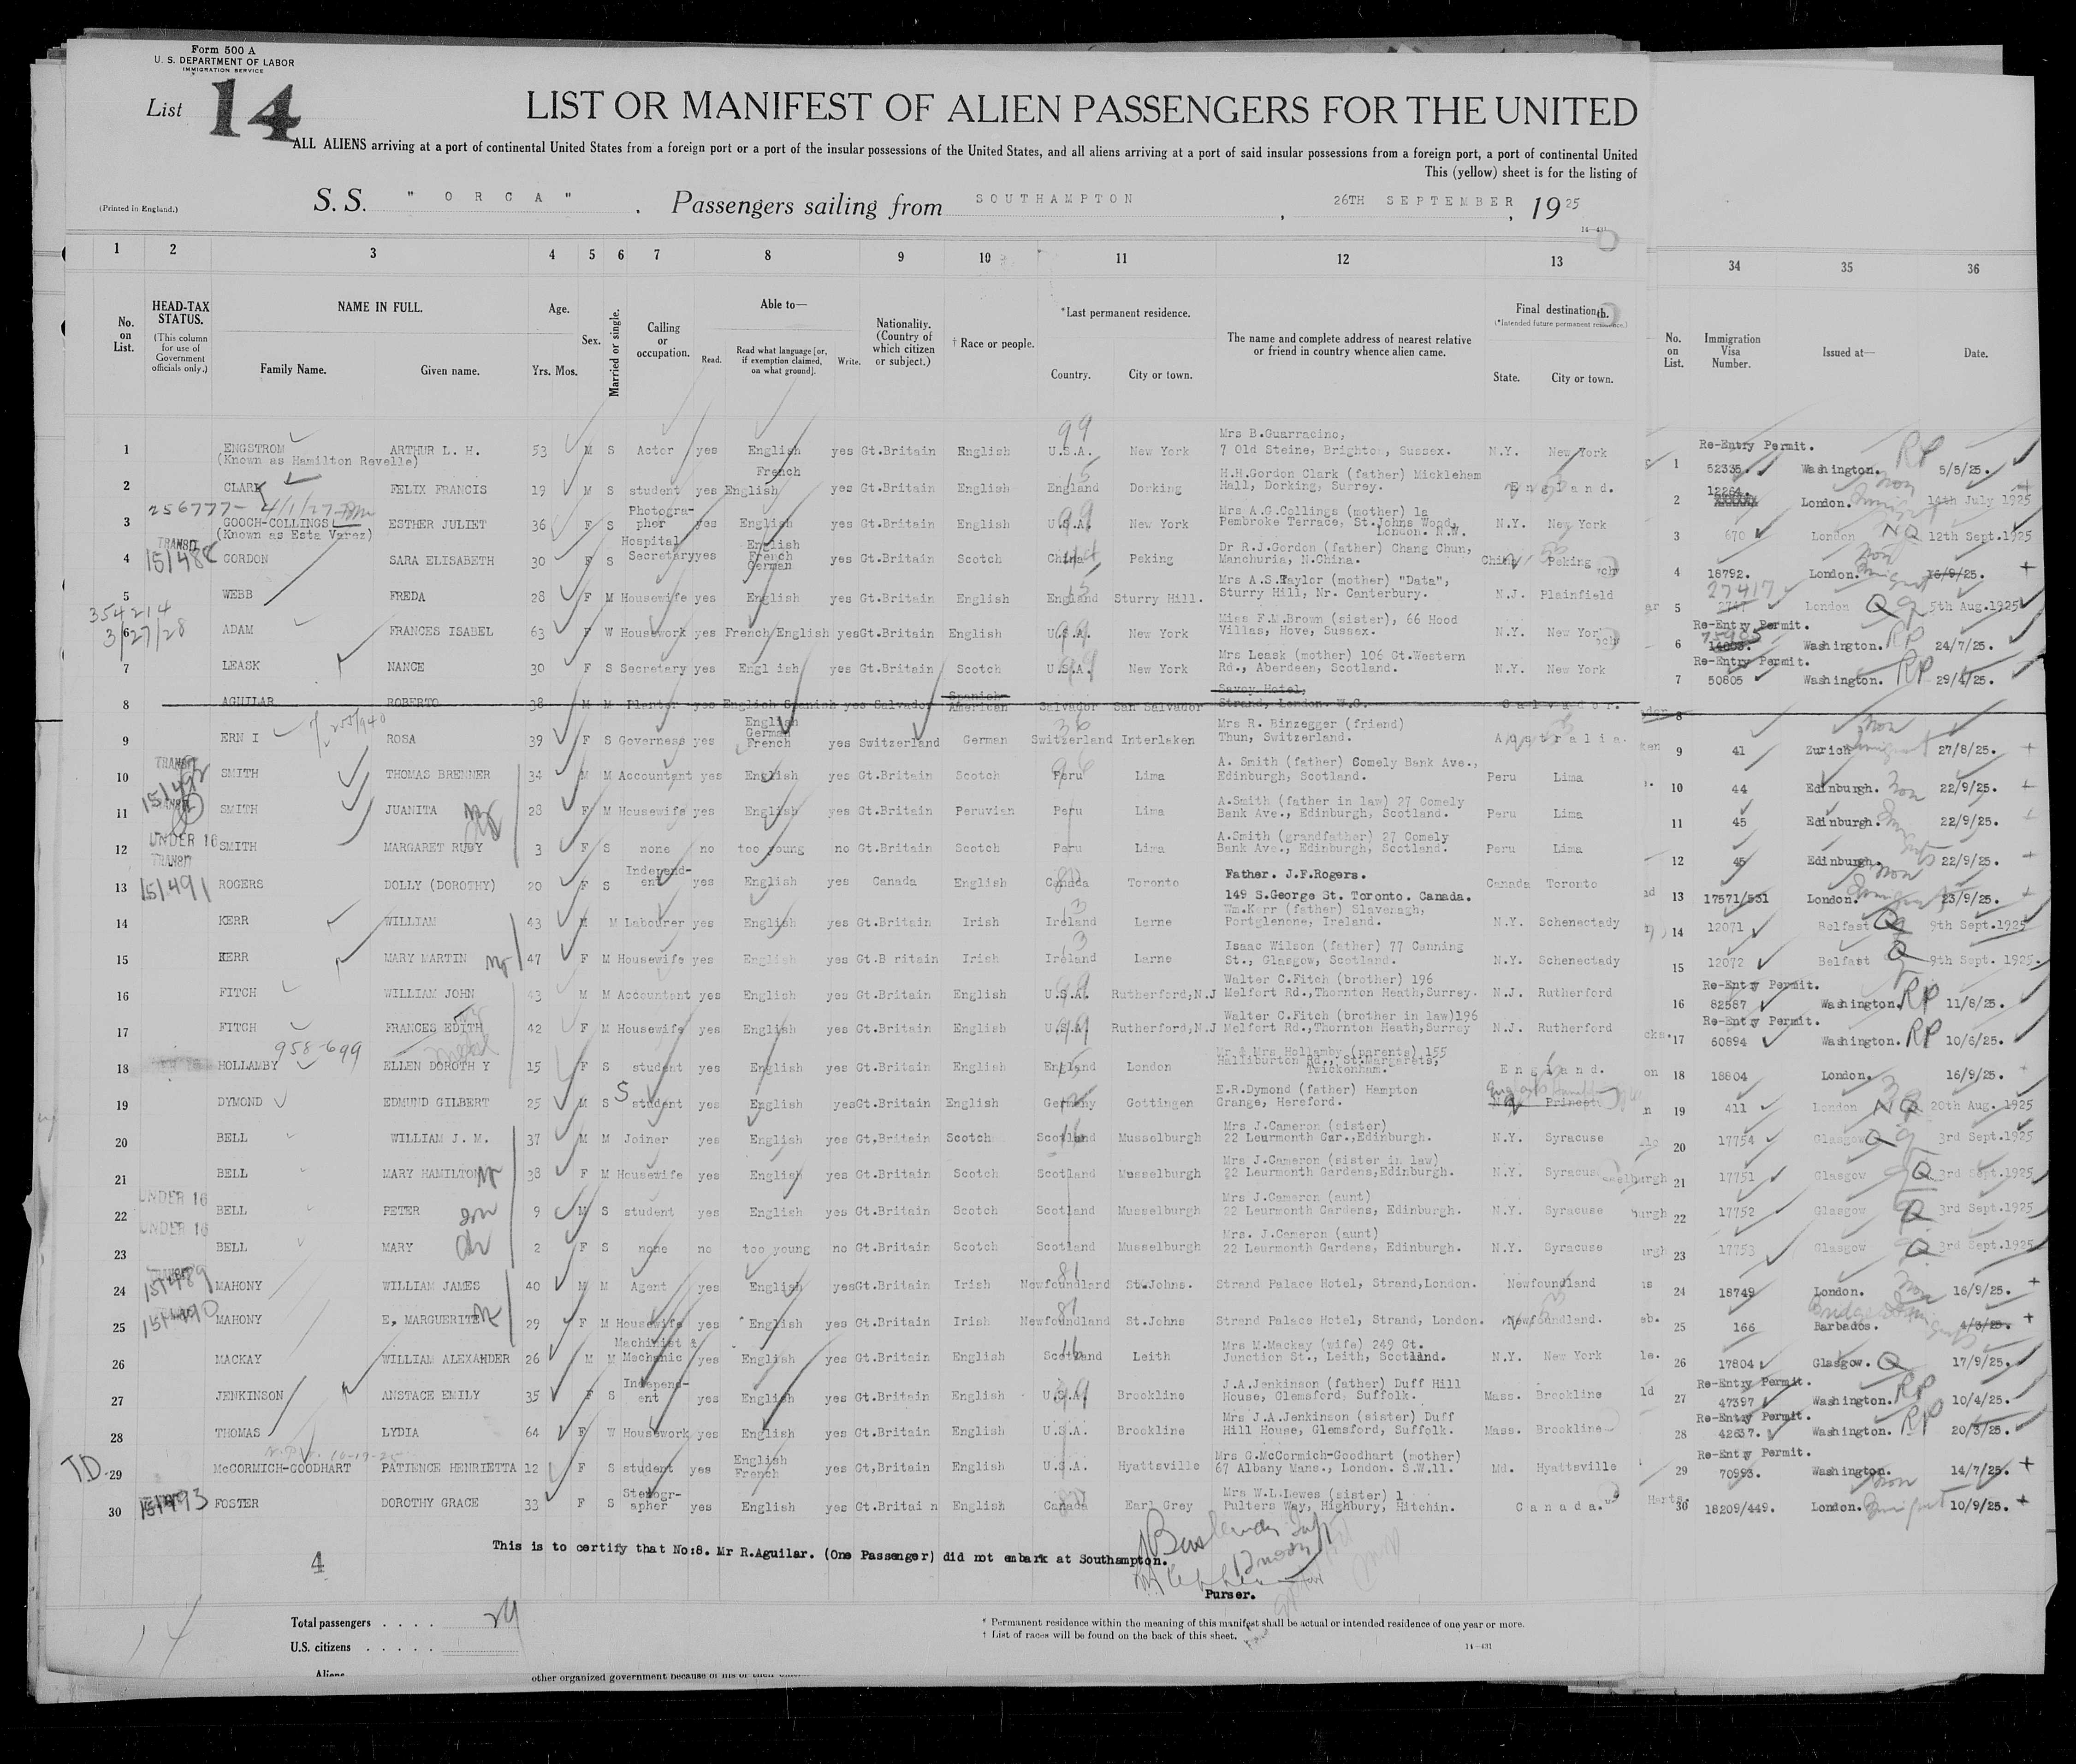 Form 500 A
U. S. DEPARTMENT OF LABOR
IMMIGRATION SERVICE
List 14
LIST OR MANIFEST OF ALIEN PASSENGERS FOR THE UNITED
ALL ALIENS arriving at a port of continental United States from a foreign port or a port of the insular possessions of the United States, and all aliens arriving at a port of said insular possessions from a foreign port, a port of continental United
This (yellow) sheet is for the listing of
(Printed in England.)
S. S. " O R C A " , Passengers sailing from SOUTHAMPTON , 26TH SEPTEMBER , 1925
14-431
1 2 3 4 5 6 7 8 9 10 11 12 13 34 35 36
No. on List.
HEAD-TAX STATUS.
(This column for use of Government officials only.)
NAME IN FULL.
Family Name. Given name.
Age.
Yrs. Mos.
Sex.
Married or single.
Calling or occupation.
Able to—
Read. Read what language [or, if exemption claimed, on what ground]. Write.
Nationality. (Country of which citizen or subject.)
† Race or people.
*Last permanent residence.
Country. City or town.
The name and complete address of nearest relative or friend in country whence alien came.
Final destination.
(*Intended future permanent residence.)
State. City or town.
No. on List.
Immigration Visa Number.
Issued at—
Date.
1 ENGSTROM (Known as Hamilton Revelle) ARTHUR L. H. 53 M S Actor yes English yes Gt.Britain English U.S.A. New York Mrs B.Guarracino, 7 Old Steine, Brighton, Sussex. N.Y. New York 1 Re-Entry Permit. 52335. Washington. RP 5/5/25.
2 CLARK FELIX FRANCIS 19 M S student yes English French yes Gt.Britain English England Dorking H.H.Gordon Clark (father) Mickleham Hall, Dorking, Surrey. England. 2 12264. London. 14th July 1925
256777- 4/1/27
3 GOOCH-COLLINGS (Known as Esta Varez) ESTHER JULIET 36 F S Photogra-pher yes English yes Gt.Britain English U.S.A. New York Mrs A.G.Collings (mother) 1a Pembroke Terrace, St.Johns Wood, London. N.W. N.Y. New York 3 670 London NQ 12th Sept.1925
4 TRANSIT GORDON SARA ELISABETH 30 F S Hospital Secretary yes English French German yes Gt.Britain Scotch China Peking Dr R.J.Gordon (father) Chang Chun, Manchuria, N.China. China Peking 4 18792. London. 16/9/25.
5 WEBB FREDA 28 F M Housewife yes English yes Gt.Britain English England Sturry Hill. Mrs A.S.Taylor (mother) "Data", Sturry Hill, Nr. Canterbury. N.J. Plainfield 5 27417 London Q 5th Aug.1925
354214 3/27/28
6 ADAM FRANCES ISABEL 63 F W Housework yes French English yes Gt.Britain English U.S.A. New York Miss F.M.Brown (sister), 66 Hood Villas, Hove, Sussex. N.Y. New York 6 Re-Entry Permit. Washington. RP 24/7/25.
7 LEASK NANCE 30 F S Secretary yes Engl ish yes Gt.Britain Scotch U.S.A. New York Mrs Leask (mother) 106 Gt.Western Rd., Aberdeen, Scotland. N.Y. New York 7 Re-Entry Permit. 50805 Washington. RP 29/4/25.
8 AGUILAR ROBERTO 38 M M Planter yes English Spanish yes Salvador Spanish American Salvador San Salvador Savoy Hotel, Strand, London. W.C. Salvador. 8
9 ERN I ROSA 39 F S Governess yes English German French yes Switzerland German Switzerland Interlaken Mrs R. Binzegger (friend) Thun, Switzerland. Australia. 9 41 Zurich 27/8/25.
10 TRANSIT SMITH THOMAS BRENNER 34 M M Accountant yes English yes Gt.Britain Scotch Peru Lima A. Smith (father) Comely Bank Ave., Edinburgh, Scotland. Peru Lima 10 44 Edinburgh. 22/9/25.
11 SMITH JUANITA 28 F M Housewife yes English yes Gt.Britain Peruvian Peru Lima A.Smith (father in law) 27 Comely Bank Ave., Edinburgh, Scotland. Peru Lima 11 45 Edinburgh. 22/9/25.
12 UNDER 16 SMITH MARGARET RUBY 3 F S none no too young no Gt.Britain Scotch Peru Lima A.Smith (grandfather) 27 Comely Bank Ave., Edinburgh, Scotland. Peru Lima 12 45 Edinburgh. 22/9/25.
13 TRANSIT 151491 ROGERS DOLLY (DOROTHY) 20 F S Independ-ent yes English yes Canada English Canada Toronto Father. J.F.Rogers. 149 S.George St. Toronto. Canada. Canada Toronto 13 17571/531 London. 23/9/25.
14 KERR WILLIAM 43 M M Labourer yes English yes Gt.Britain Irish Ireland Larne Wm.Kerr (father) Slavenagh, Portglenone, Ireland. N.Y. Schenectady 14 12071 Belfast Q 9th Sept.1925
15 KERR MARY MARTIN 47 F M Housewife yes English yes Gt.B ritain Irish Ireland Larne Isaac Wilson (father) 77 Canning St., Glasgow, Scotland. N.Y. Schenectady 15 12072 Belfast Q 9th Sept. 1925.
16 FITCH WILLIAM JOHN 43 M M Accountant yes English yes Gt.Britain English U.S.A. Rutherford,N.J Walter C.Fitch (brother) 196 Melfort Rd.,Thornton Heath,Surrey. N.J. Rutherford 16 Re-Entry Permit. 82587 Washington. RP 11/8/25.
17 FITCH FRANCES EDITH 42 F M Housewife yes English yes Gt.Britain English U.S.A Rutherford,N.J Walter C.Fitch (brother in law)196 Melfort Rd.,Thornton Heath,Surrey N.J. Rutherford 17 Re-Entry Permit. 60894 Washington. RP 10/6/25.
958-699
18 HOLLAMBY ELLEN DOROTH Y 15 F S student yes English yes Gt.Britain English England London Mr & Mrs Hollamby (parents) 155 Halliburton Rd., St.Margarets, Twickenham. England. 18 18804 London. 16/9/25.
19 DYMOND EDMUND GILBERT 25 M S student yes English yes Gt.Britain English Germany Gottingen E.R.Dymond (father) Hampton Grange, Hereford. 19 411 London NQ 20th Aug. 1925
20 BELL WILLIAM J. M. 37 M M Joiner yes English yes Gt,Britain Scotch Scotland Musselburgh Mrs J.Cameron (sister) 22 Leurmonth Gar.,Edinburgh. N.Y. Syracuse 20 17754 Glasgow Q 3rd Sept.1925
21 BELL MARY HAMILTON 38 F M Housewife yes English yes Gt.Britain Scotch Scotland Musselburgh Mrs J.Cameron (sister in law) 22 Leurmonth Gardens,Edinburgh. N.Y. Syracuse 21 17751 Glasgow Q 3rd Sept.1925
22 UNDER 16 BELL PETER son 9 M S student yes English yes Gt.Britain Scotch Scotland Musselburgh Mrs J.Cameron (aunt) 22 Leurmonth Gardens, Edinburgh. N.Y. Syracuse 22 17752 Glasgow Q 3rd Sept.1925
23 UNDER 16 BELL MARY 2 F S none no too young no Gt.Britain Scotch Scotland Musselburgh Mrs. J.Cameron (aunt) 22 Leurmonth Gardens, Edinburgh. N.Y. Syracuse 23 17753 Glasgow Q 3rd Sept.1925
24 151489 MAHONY WILLIAM JAMES 40 M M Agent yes English yes Gt.Britain Irish Newfoundland St.Johns. Strand Palace Hotel, Strand,London. Newfoundland 24 18749 London. 16/9/25.
25 151490 MAHONY E, MARGUERITE 29 F M Housewife yes English yes Gt.Britain Irish Newfoundland St.Johns Strand Palace Hotel, Strand, London. Newfoundland. 25 166 Barbados. 4/3/25.
26 MACKAY WILLIAM ALEXANDER 26 M M Machinist & Mechanic yes English yes Gt.Britain English Scotland Leith Mrs M.Mackay (wife) 249 Gt. Junction St., Leith, Scotland. N.Y. New York 26 17804 Glasgow. Q 17/9/25.
27 JENKINSON ANSTACE EMILY 35 F S Independ-ent yes English yes Gt.Britain English U.S.A Brookline J.A.Jenkinson (father) Duff Hill House, Glemsford, Suffolk. Mass. Brookline 27 Re-Entry Permit. 47397 Washington. RP 10/4/25.
28 THOMAS LYDIA 64 F W Housework yes English yes Gt.Britain English U.S.A. Brookline Mrs J.A.Jenkinson (sister) Duff Hill House, Glemsford, Suffolk. Mass. Brookline 28 Re-Entry Permit. 42637. Washington. RP 20/3/25.
TD 29 McCORMICH-GOODHART PATIENCE HENRIETTA 12 F S student yes English French yes Gt,Britain English U.S.A. Hyattsville Mrs G.McCormich-Goodhart (mother) 67 Albany Mans., London. S.W.11. Md. Hyattsville 29 Re-Entry Permit. 70993. Washington. 14/7/25.
30 151493 FOSTER DOROTHY GRACE 33 F S Stenogr-apher yes English yes Gt.Britai n English Canada Earl Grey Mrs W.L.Lewes (sister) 1 Pulters Way, Highbury, Hitchin. Canada. 30 18209/449. London. 10/9/25.
This is to certify that No:8. Mr R.Aguilar. (One Passenger) did not embark at Southampton.
Purser.
4
14
Total passengers . . . . 29
U.S. citizens . . . . .
Aliens
* Permanent residence within the meaning of this manifest shall be actual or intended residence of one year or more.
† List of races will be found on the back of this sheet.
14-431